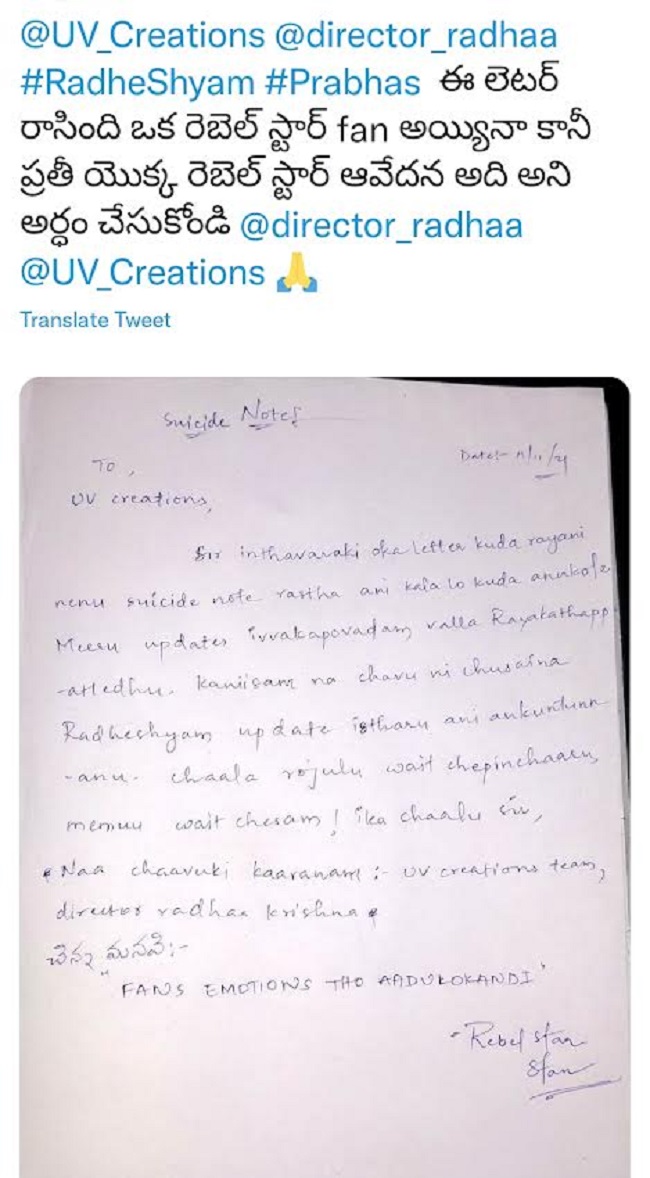 @UV_Creations @director_radhaa
#RadheShyam #Prabhas ఈ లెటర్
రాసింది ఒక రెబెల్ స్టార్ fan అయ్యినా కానీ
ప్రతీ యొక్క రెబెల్ స్టార్ ఆవేదన అది అని
అర్ధం చేసుకోండి @director_radhaa
@UV_Creations 🙏
Translate Tweet
Suicide Notes
Date:- 11/11/21
To,
UV creations,
Sir inthavaraki oka letter kuda rayani
nenu suicide note rastha ani kala lo kuda anukole
Meeru updates ivvakapovadam valla Rayakathapp
-atledhu. kaniisam na chavu ni chusaina
Radheshyam update istharu ani ankuntunn
-anu. chaala rojulu wait chepinchaaru,
memuu wait chesam! ika chaalu sir,
Naa chaavuki kaaranam :- UV creations team,
director radhaa krishna
చిన్న మనవి:-
"FANS EMOTIONS THO AADUKOKANDI"
- Rebel star
Sfan